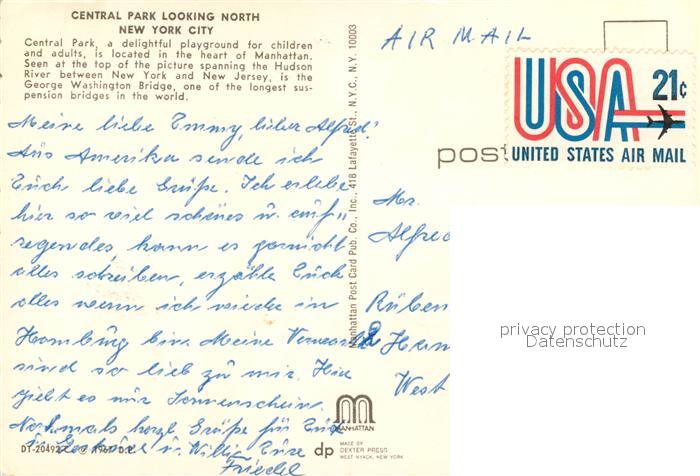 CENTRAL PARK LOOKING NORTH
NEW YORK CITY
Central Park, a delightful playground for children
and adults, is located in the heart of Manhattan.
Seen at the top of the picture spanning the Hudson
River between New York and New Jersey, is the
George Washington Bridge, one of the longest sus-
pension bridges in the world.
Meine liebe Emmy, lieber Alfred!
Aus Amerika sende ich
Euch liebe Grüße. Ich erlebe
hier so viel schönes u. auf=
regendes, kann es garnicht
alles schreiben, erzähle Euch
alles wenn ich wieder in
Hamburg bin. Meine
sind so lieb zu mir. Hier
gibt es nur Sonnenschein.
Nochmals herzl Grüße für Euch
u. u. Willi Eure
Friedel
DT-20492-C
Manhattan Post Card Pub. Co., Inc., 418 Lafayette St., N.Y.C., N.Y. 10003
MANHATTAN
dp
MADE BY
DEXTER PRESS
WEST NYACK, NEW YORK
AIR MAIL
USA 21¢
UNITED STATES AIR MAIL
post
Mr.
Alfred
Rüben
2 Ham
West
privacy protection
Datenschutz